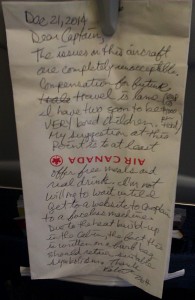 Dec 21, 2014
Dear Captain,
The issues on this aircraft
are completely unacceptable.
Compensation for future
travel is lame
I have two soon to be
VERY tired children.
My suggestion at this
point is to at least
AIR CANADA
offer free meals and
real drinks. I'm not
willing to wait until I
get to a website to complain
to a faceless machine.
Due to the heat build up
in the cabin, the fact this
is written on a
should
symbolism. Thank